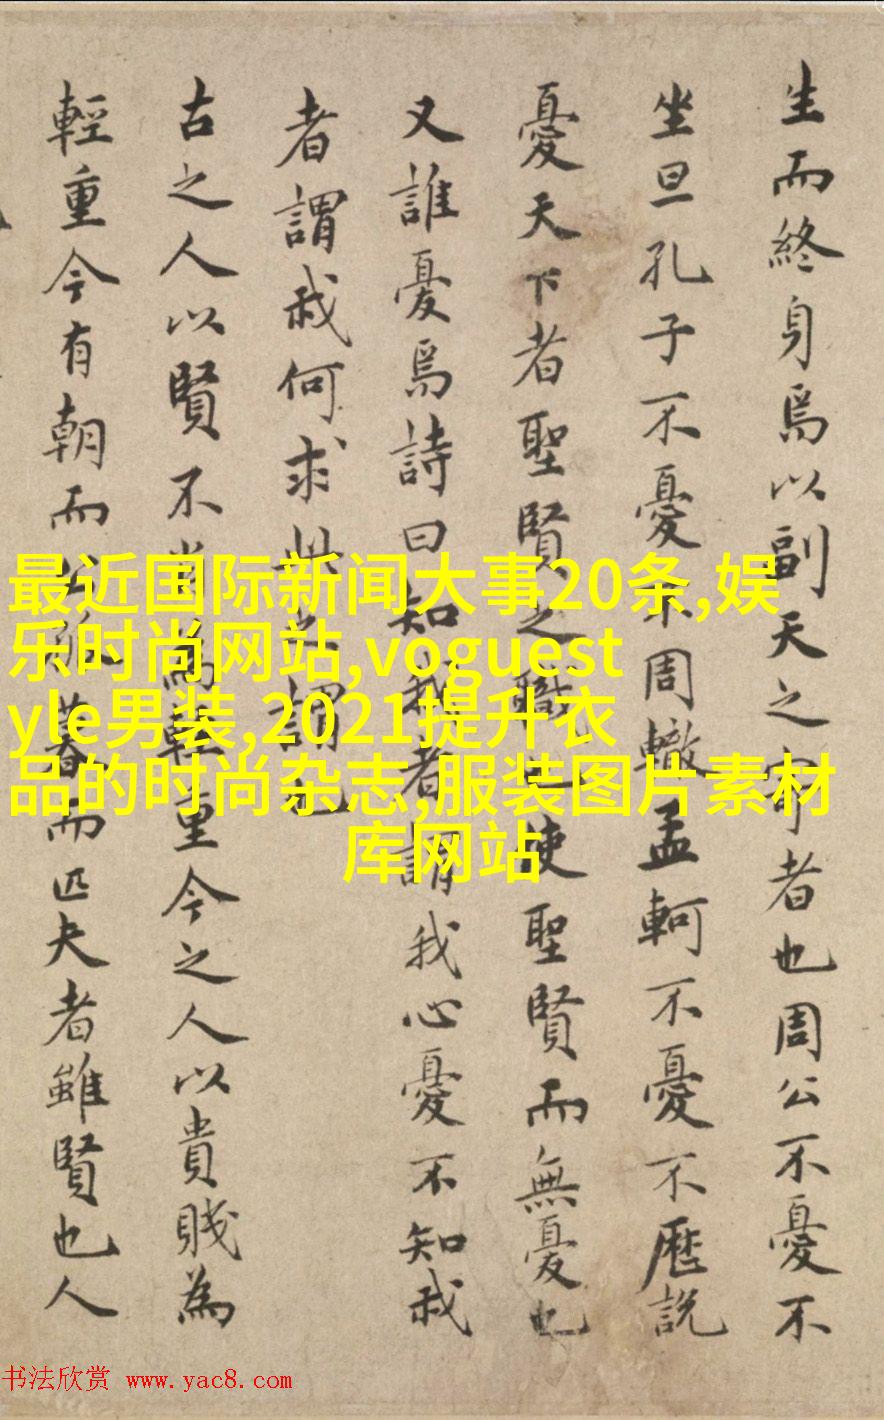 生而終身焉以副天之寄者也周公不憂不
坐旦孔子不憂不周轍孟軻不憂不歷說
憂天下者聖賢之職也使聖賢而無憂也
又誰憂焉詩曰知我者謂我心憂不知我
者謂我何求此之謂也
古之人以賢不肖為輕重今之人以貴賤為
輕重今有朝而暮而匹夫者雖賢也人
最近国际新闻大事20条,娱
乐时尚网站,voguest
yle男装,2021提升衣
品的时尚杂志,服装图片素材
库网站
书法欣赏 www.yac8.com